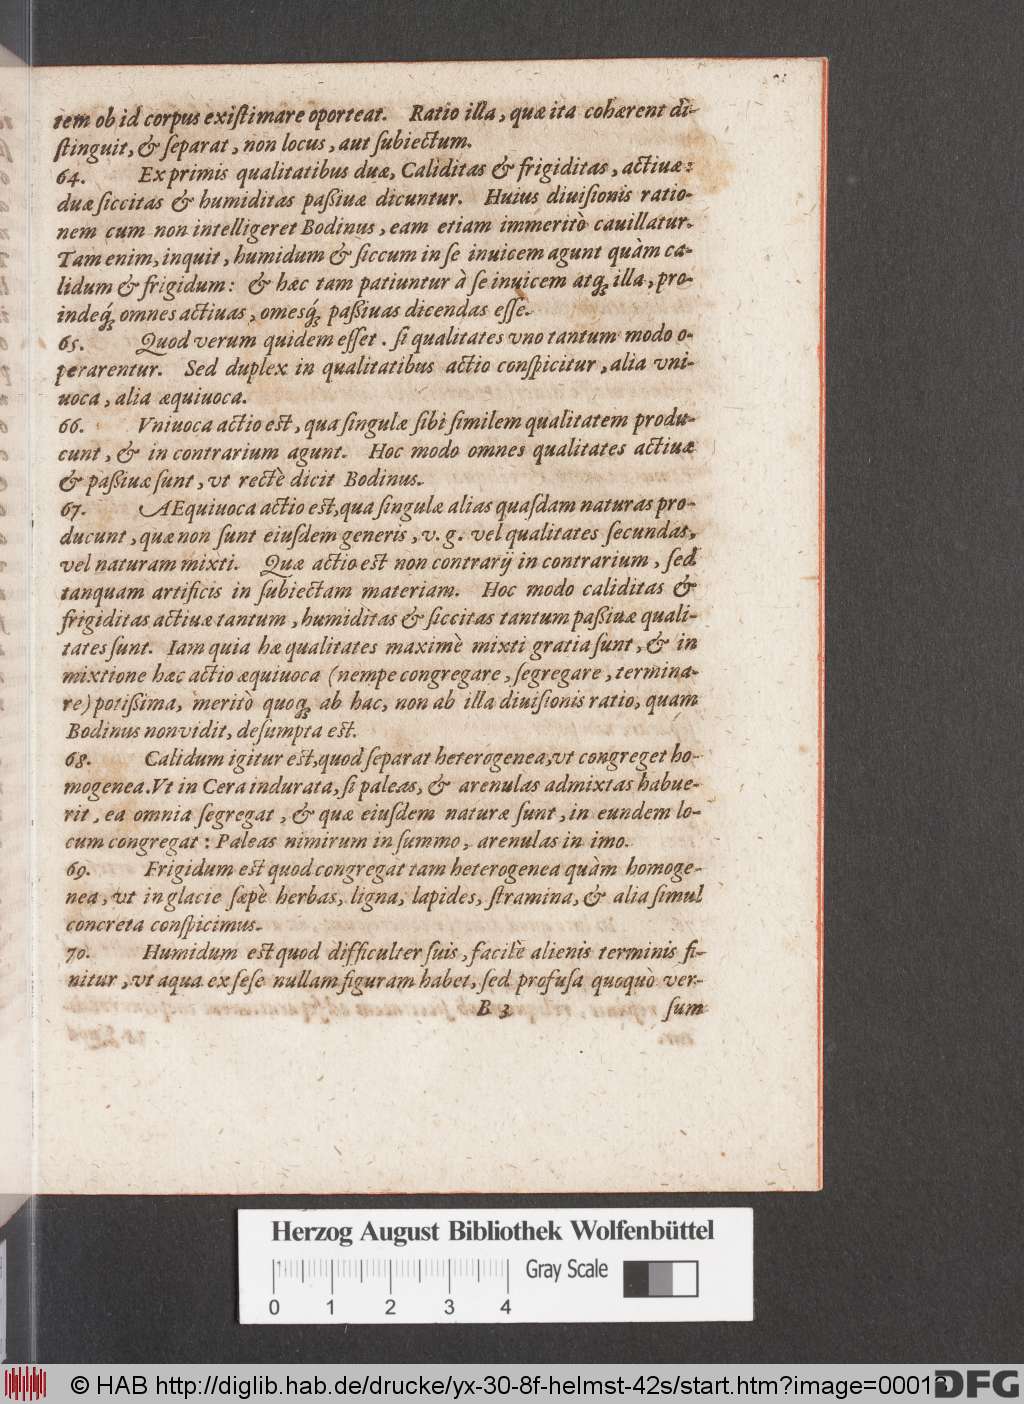 tem ob id corpus exiſtimare oporteat. Ratio illa, quæ ita cohærent di-
ſtinguit, & ſeparat, non locus, aut ſubiectum.
64. Ex primis qualitatibus duæ, Caliditas & frigiditas, actiuæ:
duæ ſiccitas & humiditas paßiuæ dicuntur. Huius diuiſionis ratio-
nem cum non intelligeret Bodinus, eam etiam immeritò cauillatur.
Tam enim, inquit, humidum & ſiccum in ſe inuicem agunt quàm ca-
lidum & frigidum: & hæc tam patiuntur à ſe inuicem atq; illa, pro-
indeq́; omnes actiuas, omesq́; paßiuas dicendas eſſe.
65. Quod verum quidem eſſet. ſi qualitates vno tantum modo o-
perarentur. Sed duplex in qualitatibus actio conſpicitur, alia vni-
uoca, alia æquiuoca.
66. Vniuoca actio est, qua ſingulæ ſibi ſimilem qualitatem produ-
cunt, & in contrarium agunt. Hoc modo omnes qualitates actiuæ
& paßiuæ ſunt, vt rectè dicit Bodinus.
67. AEquiuoca actio est, qua ſingulæ alias quaſdam naturas pro-
ducunt, quæ non ſunt eiuſdem generis, v. g. vel qualitates ſecundas,
vel naturam mixti. Quæ actio est non contrarij in contrarium, ſed
tanquam artificis in ſubiectam materiam. Hoc modo caliditas &
frigiditas actiuæ tantum, humiditas & ſiccitas tantum paßiuæ quali-
tates ſunt. Iam quia hæ qualitates maximè mixti gratia ſunt, & in
mixtione hæc actio æquiuoca (nempe congregare, ſegregare, termina-
re) potißima, meritò quoq; ab hac, non ab illa diuiſionis ratio, quam
Bodinus non vidit, deſumpta est.
68. Calidum igitur est, quod ſeparat heterogenea, vt congreget ho-
mogenea. Vt in Cera indurata, ſi paleas, & arenulas admixtas habue-
rit, ea omnia ſegregat, & quæ eiuſdem naturæ ſunt, in eundem lo-
cum congregat: Paleas nimirum in ſummo, arenulas in imo.
69. Frigidum est quod congregat tam heterogenea quàm homoge-
nea, vt in glacie ſæpè herbas, ligna, lapides, ſtramina, & alia ſimul
concreta conſpicimus.
70. Humidum est quod difficulter ſuis, facilè alienis terminis fi-
nitur, vt aqua ex ſeſe nullam figuram habet, ſed profuſa quoquò ver-
B 3 ſum
Herzog August Bibliothek Wolfenbüttel
Gray Scale
0 1 2 3 4
© HAB http://diglib.hab.de/drucke/yx-30-8f-helmst-42s/start.htm?image=00013
DFG